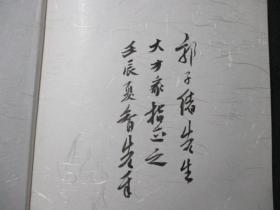 郭子绪先生
大方家指正之
壬辰夏智告手